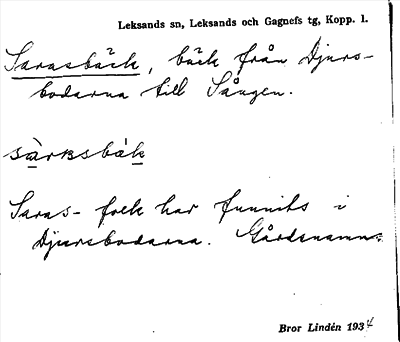 Leksands sn, Leksands och Gagnefs tg, Kopp. l.
Sarasbäck, bäck från Djurs-
bodarna till Sången.
sàrasbàk
Saras- folk har funnits i
Djursbodarna. Gårdsnamn.
Bror Lindén 1934